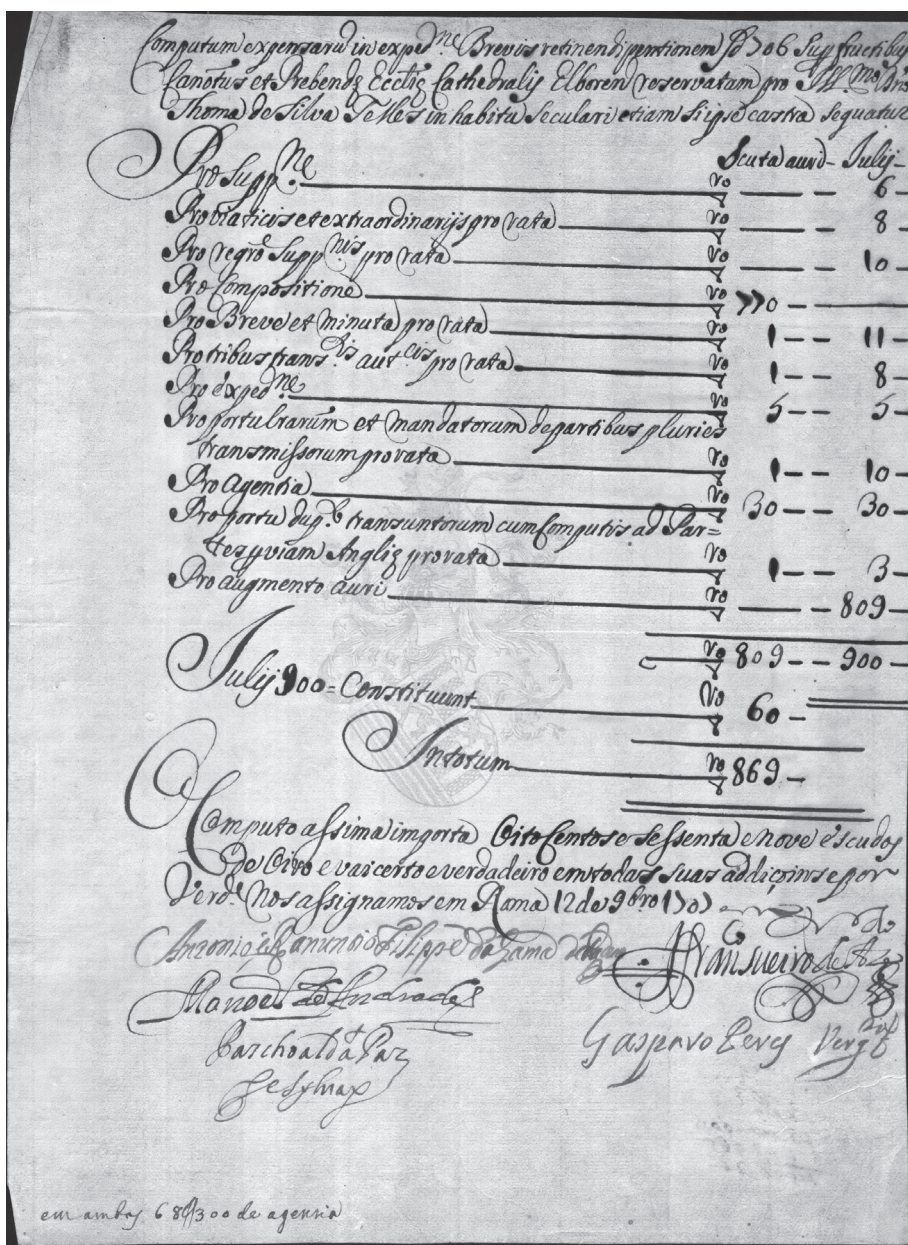 Computum expensarũ in exped.ne Brevis retinendi pentionem 706 Sup fructibus
Canõtus et Prebendę Ecclię Cathedralis Elboren reservatam pro Ill.mo
Thoma de Silva Telles in habitu Seculari etiam si ipse castra sequatur
Scuta auri - Julij -
Pro Supp.ne vo — — 6 -
Pro viaticis et extraordinarijs pro rata vo — — 8 -
Pro regrõ Supp.nis pro rata vo — — 10 -
Pro Compositione vo 770 —
Pro Breve et minuta pro rata vo 1 — — 11 -
Pro tribus trans.is aut.cis pro rata vo 1 — — 8
Pro exped.ne vo 5 — — 5 -
Pro portu lrarum et mandatorum de partibus pluries
transmissorum pro rata vo 1 — — 10 -
Pro Agentia vo 30 — — 30 -
Pro portu dup. transuntorum cum Computis ad Par=
tes p viam Anglię pro rata vo 1 — — 3 -
Pro augmento auri vo — — 809
vo 809 — — 900 —
Julij 900 = Constituunt vo 60 -
In totum vo 869 -
O Computo assima importa Oito Centos e Sessenta e nove escudos
de Oiro e vai certo e verdadeiro em todas suas addiçoins e por
Verd.e Nos assignamos em Roma 12 de 9bro 1707
Antonio Ranuncio Filippe da Gama
Fran sueiro de
Manoel de Andrade
Gasparo Peres
Paschoal da Paz
de Sylva
em ambas 68 300 de agensia